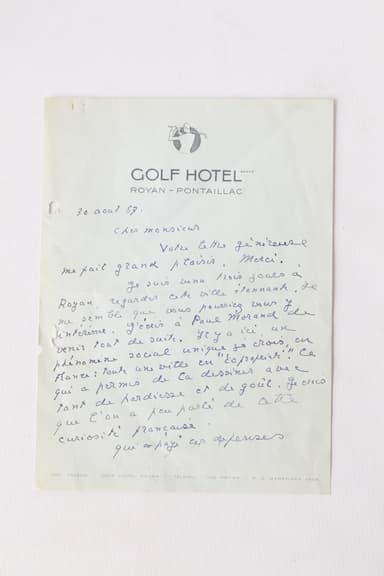 GOLF HOTEL
ROYAN - PONTAILLAC
30 août 67.
Cher monsieur
Votre lettre généreuse
me fait grand plaisir. Merci.
Je suis venu trois jours à
Royan, regarder cette ville étonnante. Je
me semble que vous pourriez vous y
intéresser. J'écris à Paul Morand de
venir tout de suite. Il y a ici un
phénomène social unique je crois, en
France: toute une ville en "copropriété". Ce
qui a permis de la dessiner avec
tant de hardiesse et de goût. Je crois
que l'on a peu parlé de cette
curiosité française.
qui a payé ces dépenses
GOLF HOTEL ROYAN